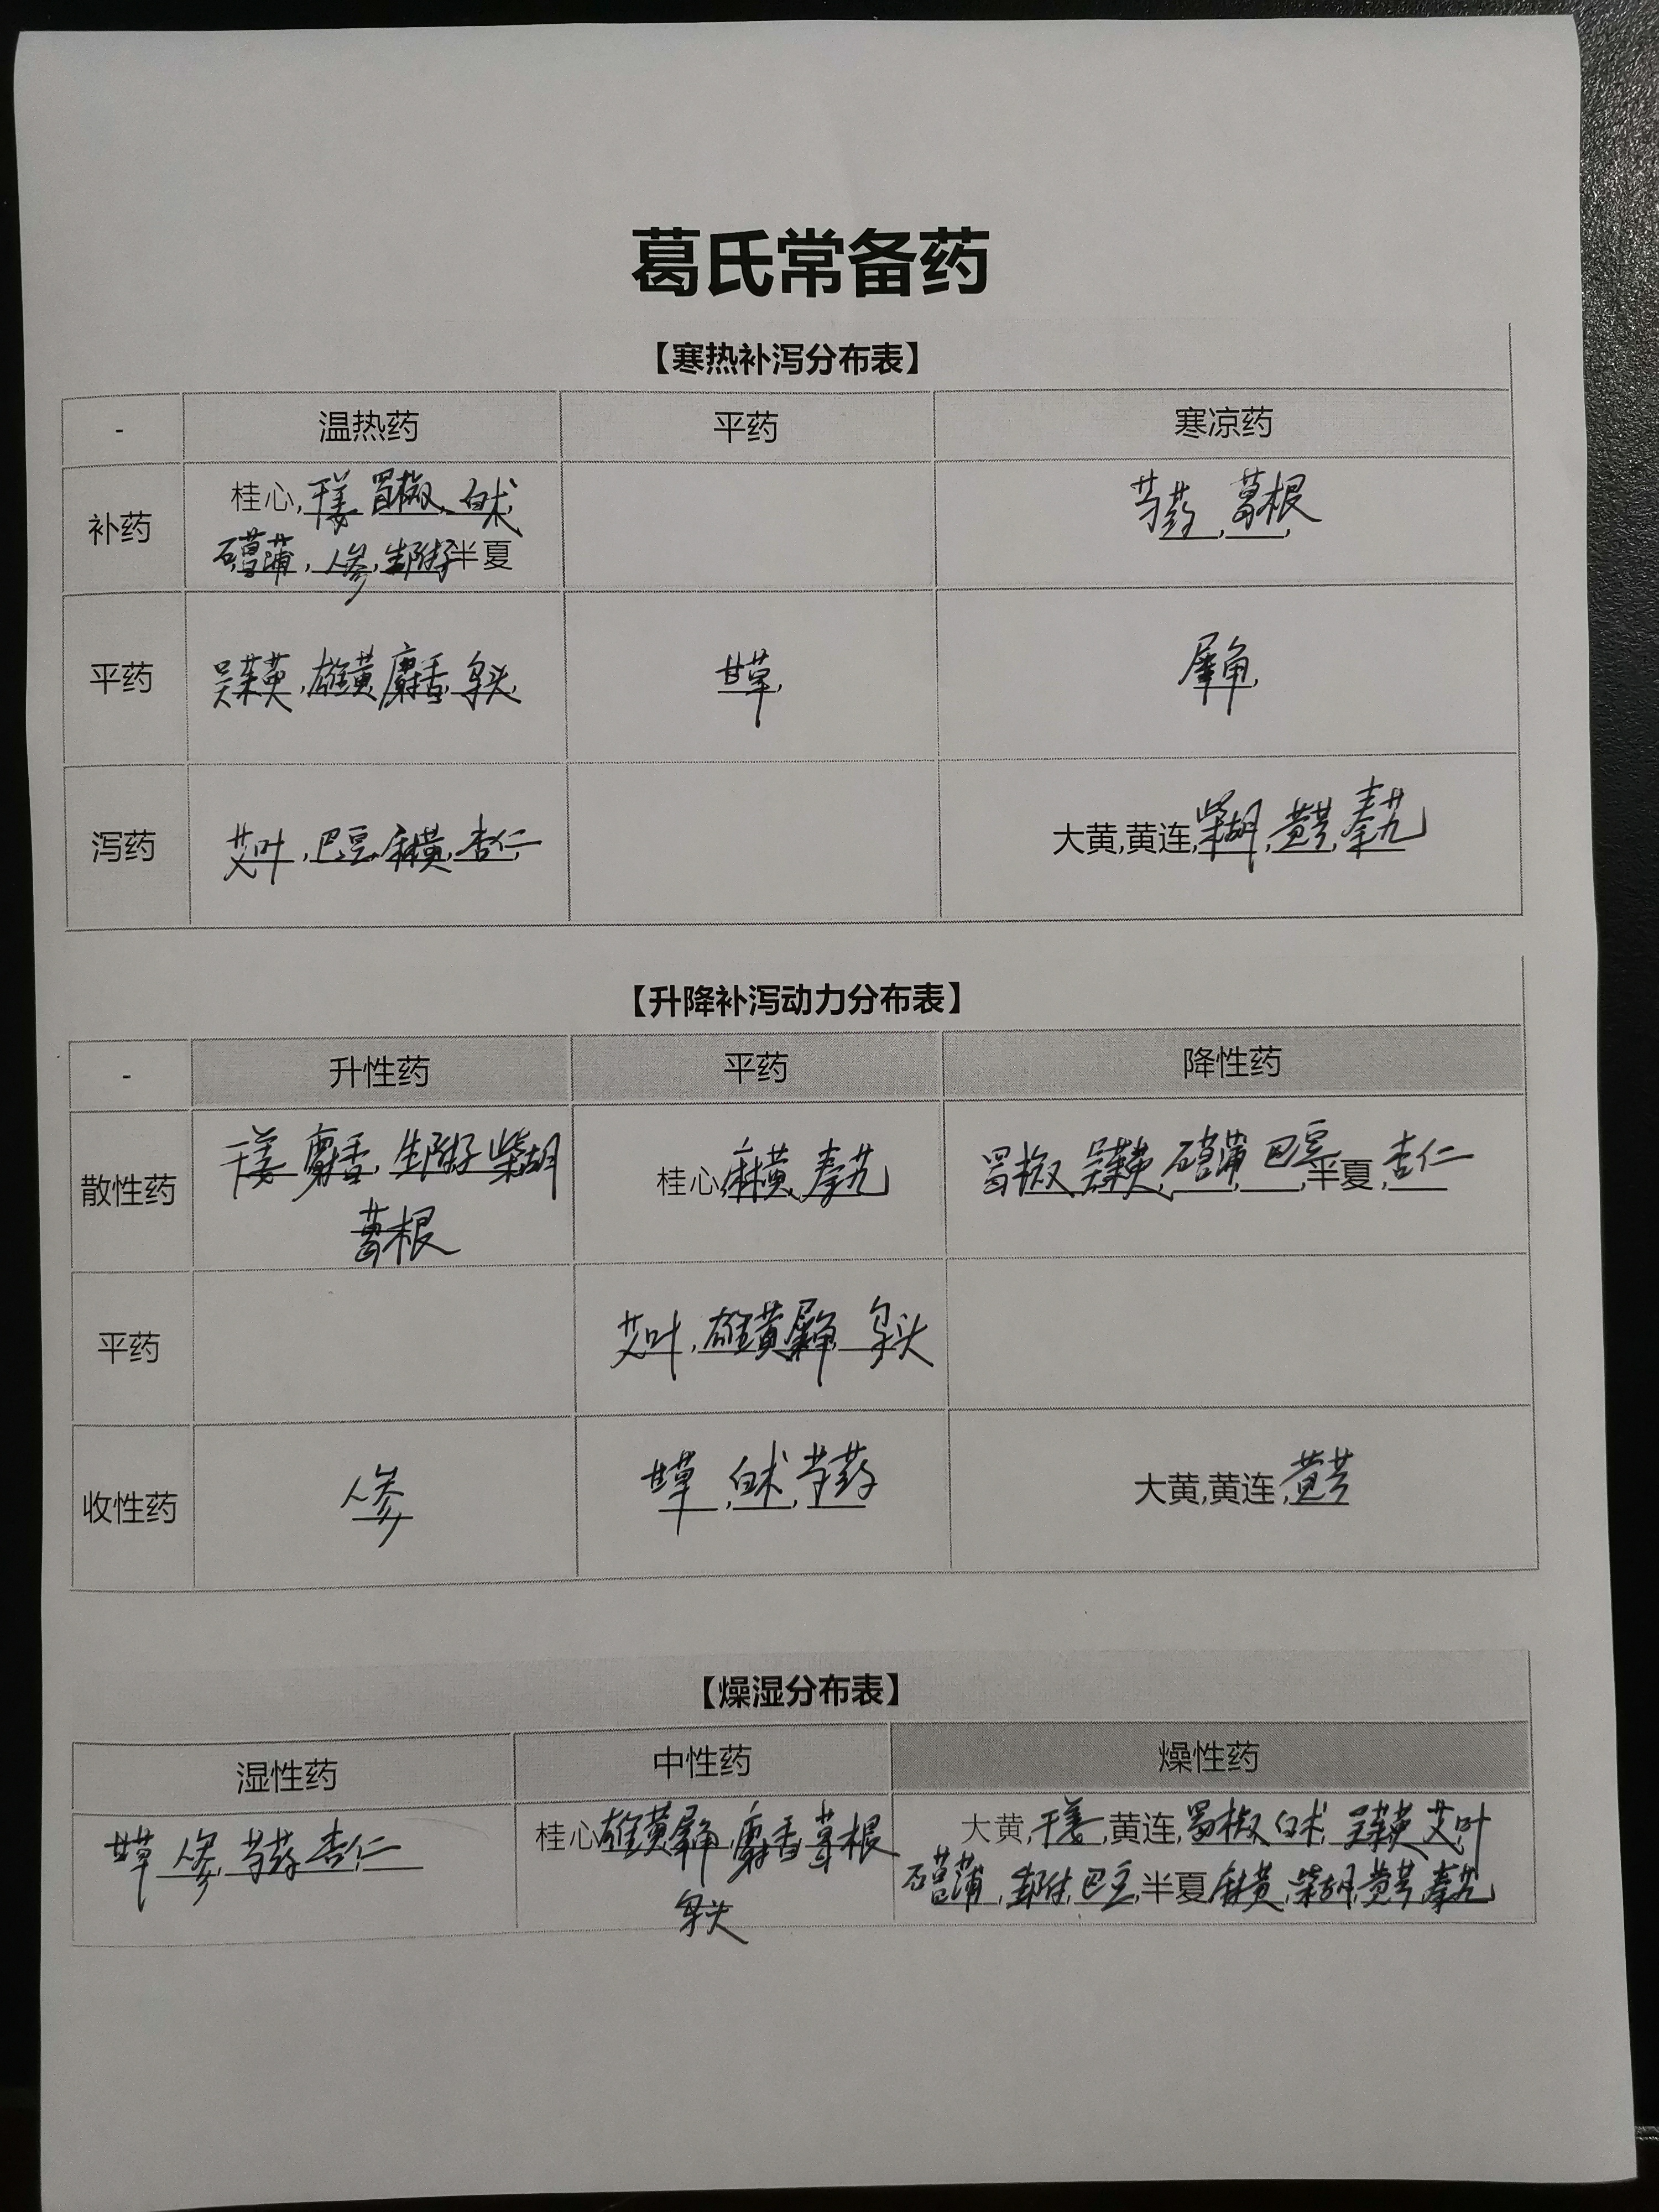 葛氏常备药
【寒热补泻分布表】
- 温热药 平药 寒凉药
补药
桂心,干姜 蜀椒,白术,
石菖蒲,人参,生附子半夏
芍药,葛根,
平药
吴茱萸,雄黄,麝香,乌头,
甘草,
犀角,
泻药
艾叶,巴豆,麻黄,杏仁
大黄,黄连,柴胡,黄芩,秦艽
【升降补泻动力分布表】
- 升性药 平药 降性药
散性药
干姜 麝香,生附子 柴胡
葛根
桂心,麻黄,秦艽
蜀椒 吴茱萸,石菖蒲,巴豆,半夏,杏仁
平药
艾叶,雄黄 犀角, 乌头
收性药
人参
甘草,白术,芍药
大黄,黄连,黄芩
【燥湿分布表】
湿性药 中性药 燥性药
甘草 人参,芍药 杏仁
桂心雄黄犀角,麝香,葛根
乌头
大黄,干姜,黄连,蜀椒 白术,吴茱萸 艾叶
石菖蒲,生附,巴豆,半夏麻黄,柴胡,黄芩,秦艽